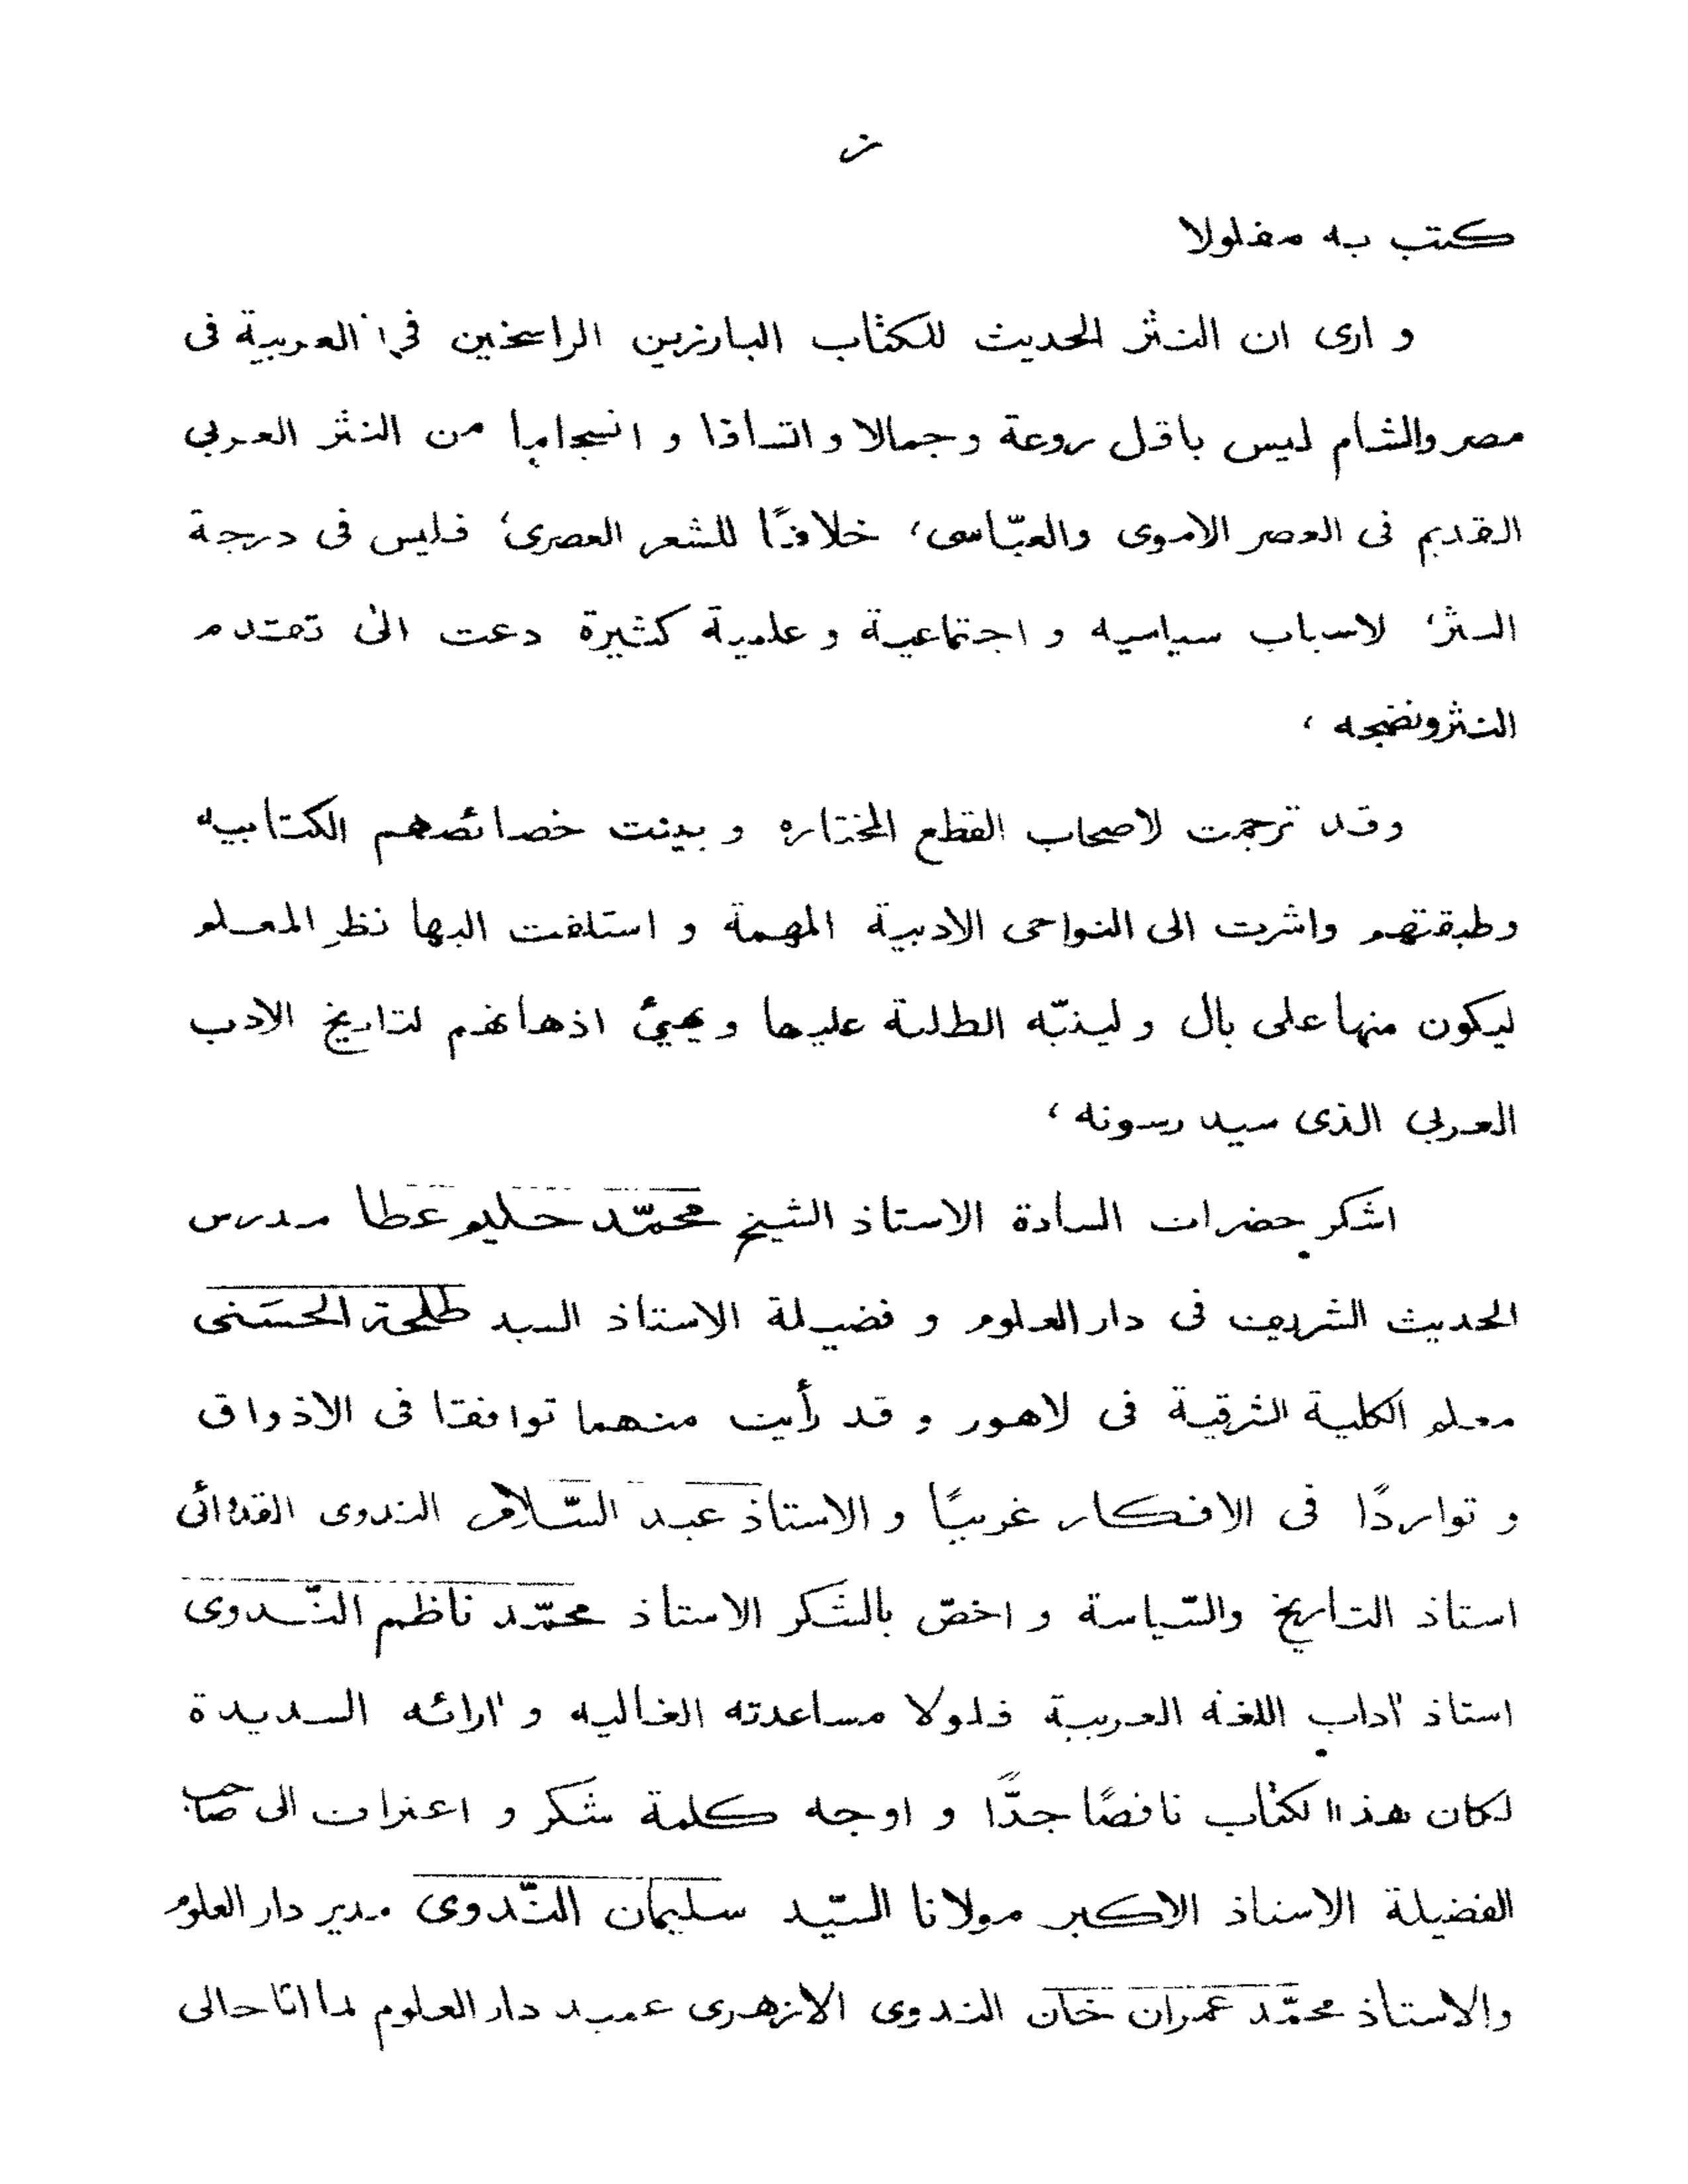 ز
كتب به مفلولا
و ارى ان النثر الحديث للكتاب البارزين الراسخين في العربية فى
مصر والشام ليس باقل روعة وجمالا و اتساقا و انسجاما من النثر العربي
القديم فى العصر الاموى والعبّاسى، خلافًا للشعر العصرى، فليس فى درجة
النثر، لاسباب سياسيه و اجتماعية و علمية كثيرة دعت الى تقدم
النثر ونضجه ،
وقد ترجمت لاصحاب القطع المختاره و بينت خصائصهم الكتابيه
وطبقتهم واشرت الى النواحى الادبية المهمة و استلفت اليها نظر المعلم
ليكون منها على بال و لينبّه الطلبة عليها و يهيئ اذهانهم لتاريخ الادب
العربي الذى سيدرسونه ،
اشكر حضرات السادة الاستاذ الشيخ محمّد حليم عطا مدرس
الحديث الشريف فى دار العلوم و فضيلة الاستاذ السيد طلحة الحسَنى
معلم الكلية الشرقية فى لاهور و قد رأيت منهما توافقا فى الاذواق
و تواردًا فى الافكار غريبًا و الاستاذ عبد السّلام الندوى القدوائى
استاذ التاريخ والسّياسة و اخصّ بالشكر الاستاذ محمّد ناظم النّدوى
استاذ آداب اللغة العربية فلولا مساعدته الغاليه و آرائه السديدة
لكان هذا الكتاب ناقصًا جدًّا و اوجه كلمة شكر و اعتراف الى صاحب
الفضيلة الاستاذ الاكبر مولانا السّيد سليمان النّدوى مدير دار العلوم
والاستاذ محمّد عمران خان الندوى الازهرى عميد دار العلوم لما اتاحالى